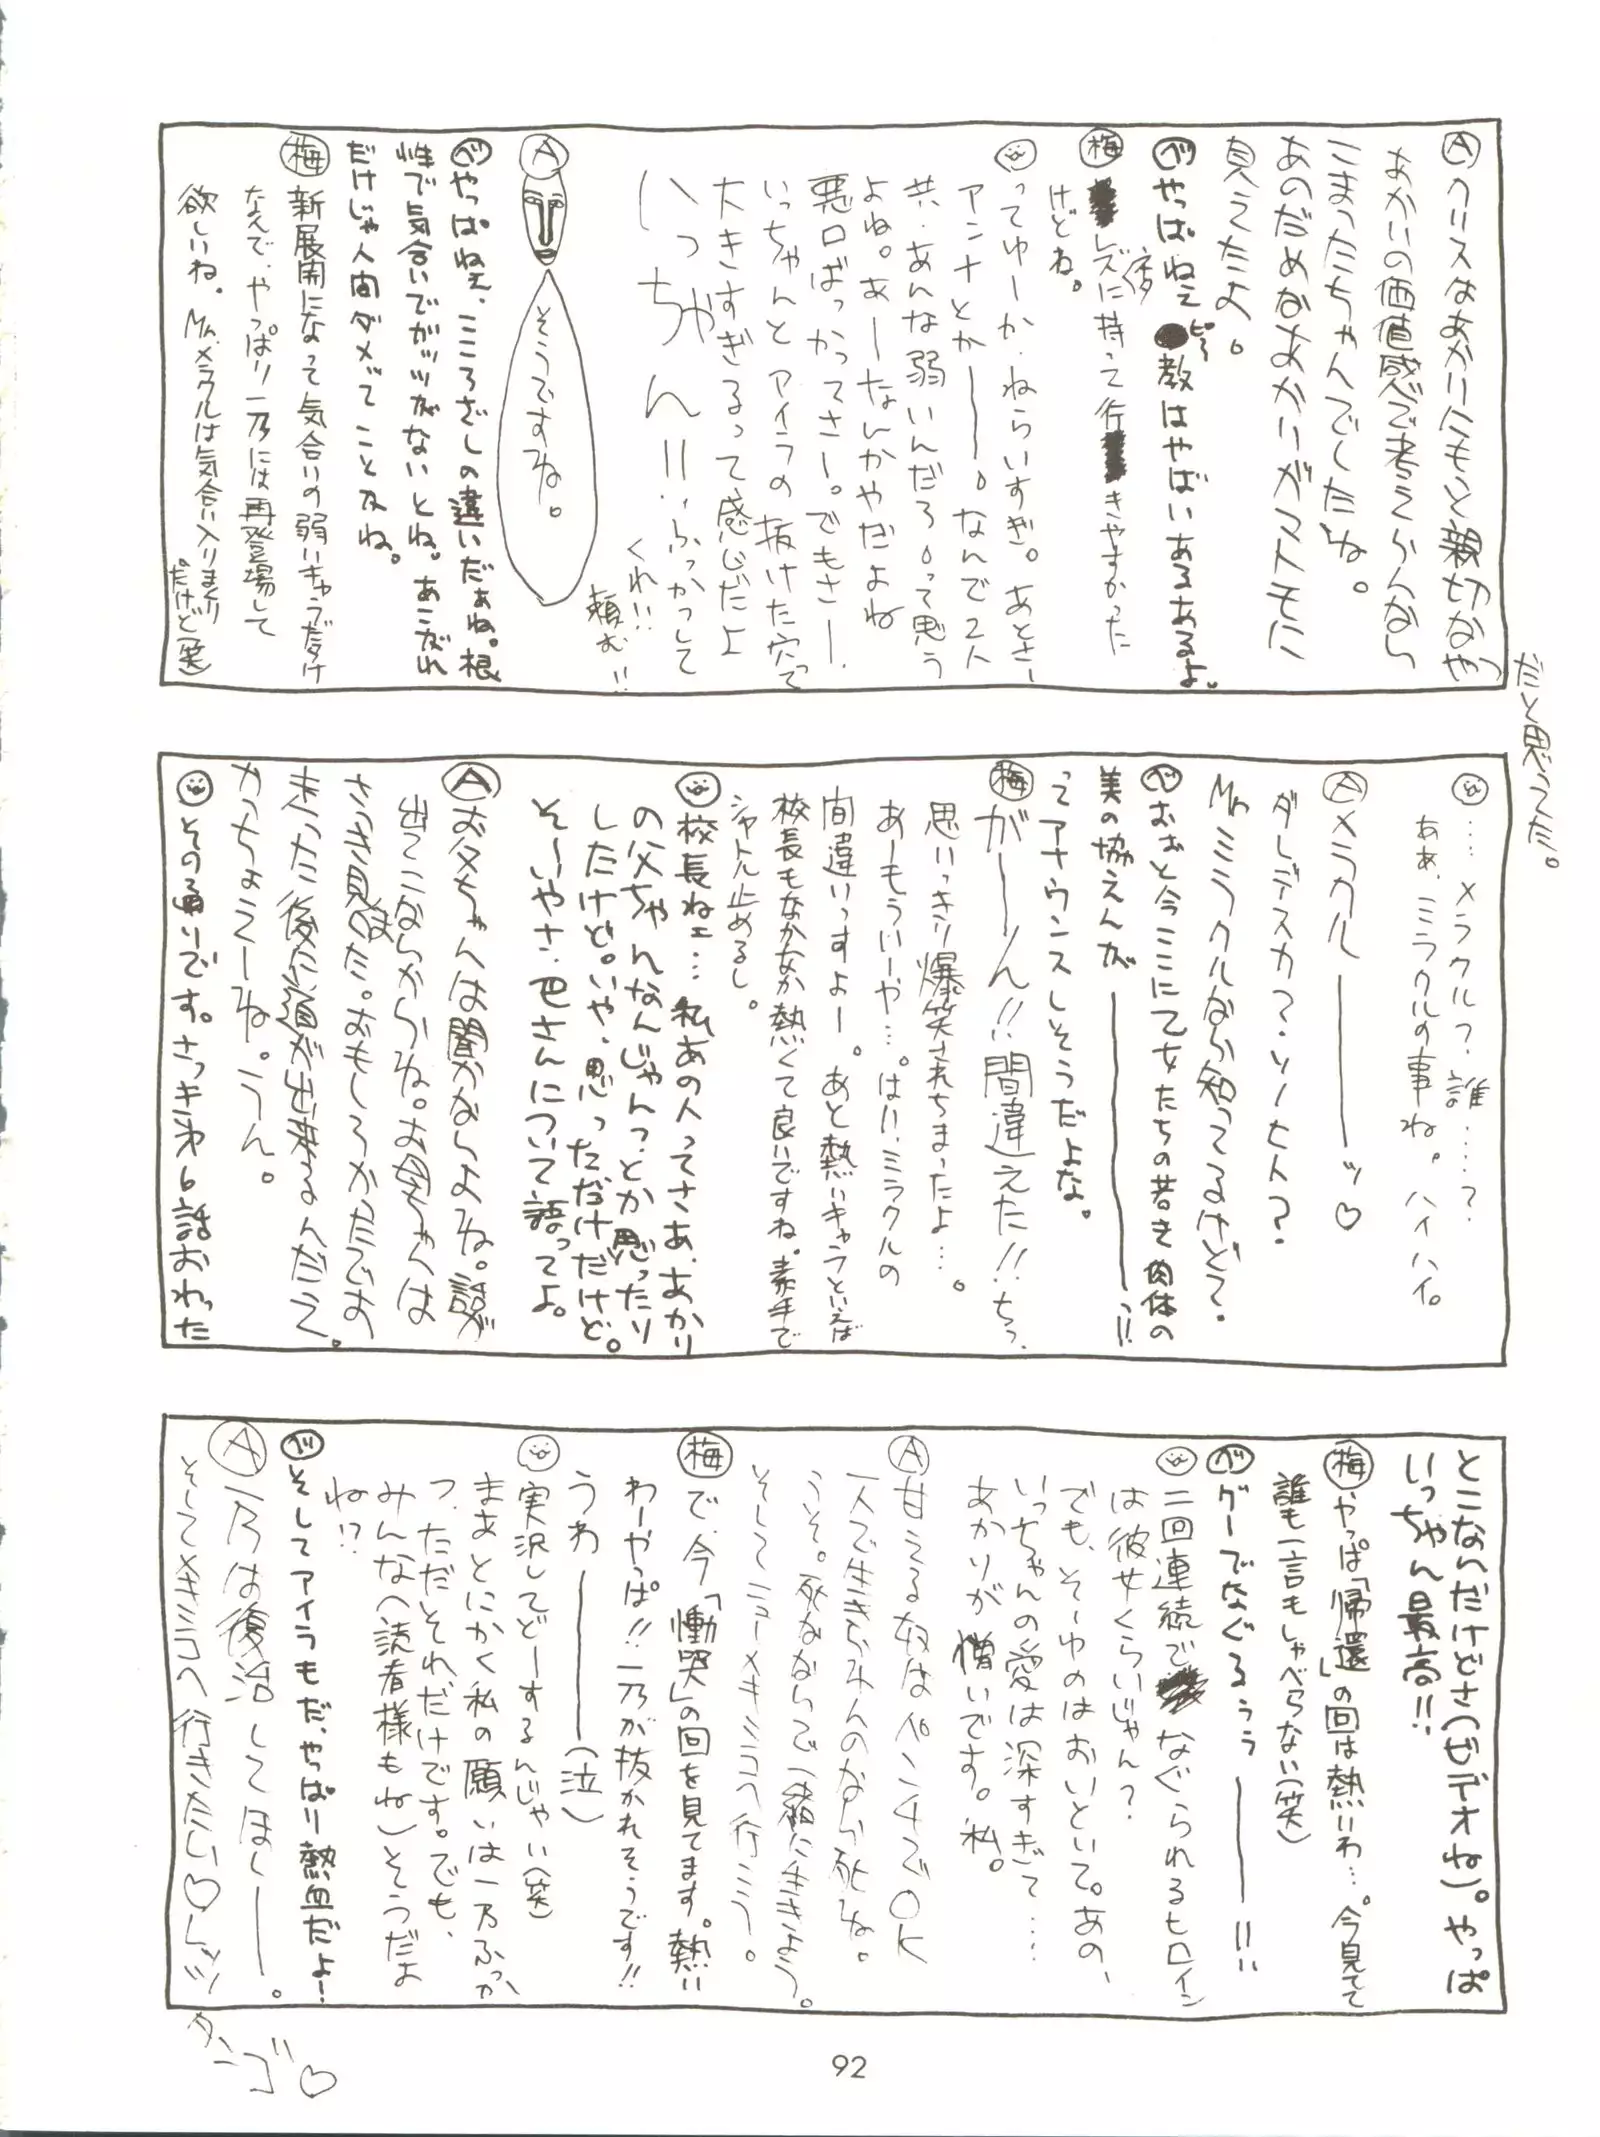 Ⓐクリスはあかりにもっと親切なやつだと思ってた。
あかりの価値感で考えらんなら
こまったちゃんでしたね。
あのだめなあかりがマトモに
見えたよ。
㋬やっぱねえ ●教はやばいあるあるよ。
ピー
梅 レズに持って行きやすかった
ネタ
けどね。
ってゆーか、ねらいすぎ。あとさー
アンナとかー——。なんで2人
共、あんな弱いんだろ。って思う
よね。あーなんかやだよね
悪口ばっかってさー。でもさー、
いっちゃんとアイラの抜けた穴って
大きすぎるって感じだよ
いっちゃん!!ふっかつして
くれ!!
頼む!!
Ⓐ
そうですね。
㋬やっぱねェ、こころざしの違いだぁね。根
性で気合いでガッツがないとね。あこがれ
だけじゃ人間ダメってことよね。
梅 新展開になって気合いの弱いキャラだらけ
なんで、やっぱり一乃には再登場して
欲しいね。Mr.メラクルは気合い入りまくり
だけど(笑)
……メラクル?誰……?
ああ、ミラクルの事ね。ハイハイ。
Ⓐメラクル————ッ♡
ダレデスカ?ソノヒト?
Mr.ミラクルなら知ってるけど?
㋬おおと今ここに乙女たちの若き肉体の
美の協えんが————っ!!
ってアナウンスしそうだよな。
梅 が——ん!!間違えた!!ちっ、
思いっきり爆笑されちまったよ…。
あーもういーや…。はい、ミラクルの
間違いっすよー。あと熱いキャラといえば
校長もなかなか熱くて良いですね。素手で
シャトル止めるし。
校長ねェ…私あの人ってさぁ、あかり
の父ちゃんなんじゃんっ、とか思ったり
したけど。いや、思っただけだけど。
そ〜いやさ、巴さんについて語ってよ。
Ⓐお父ちゃんは聞かなよね。話が
出てこないからね。お母ちゃんは
さっき見た。おもしろかったでよ
まっ
走った後に道が出来るんだって。
かっちょえーね。うん。
その通りです。さっき第6話おわった
とこなんだけどさ(ビデオね)。やっぱ
いっちゃん最高!!
梅 やっぱ「帰還」の回は熱いわ…。今見てて
誰も一言もしゃべらない(笑)
㋬グーでなぐるぅぅ————!!
二回連続でなぐられるヒロイン
は彼女くらいじゃん?
でも、そーゆのはおいといて。あの、
いっちゃんの愛は深すぎて……
あかりが憎いです。私。
Ⓐ甘える奴はパンチでOK
一人で生きらんないなら死ね。
うそ。死なないで一緒に生きよう。
そしてニューメキシコへ行こう。
梅 で、今「慟哭」の回を見てます。熱い
わーやっぱ!!一乃が抜かれそうです!!
うわ————(泣)
実況してどーするんじゃい(笑)
まあとにかく私の願いは一乃ふっか
つ、ただそれだけです。でも、
みんな(読者様もね)そうだよ
ね!?
㋬そしてアイラもだ、やっぱり熱血だよ!
Ⓐ一乃は復活してほしー——。
そしてメキシコへ行きたい♡レッツ
ダンゴ♡
92